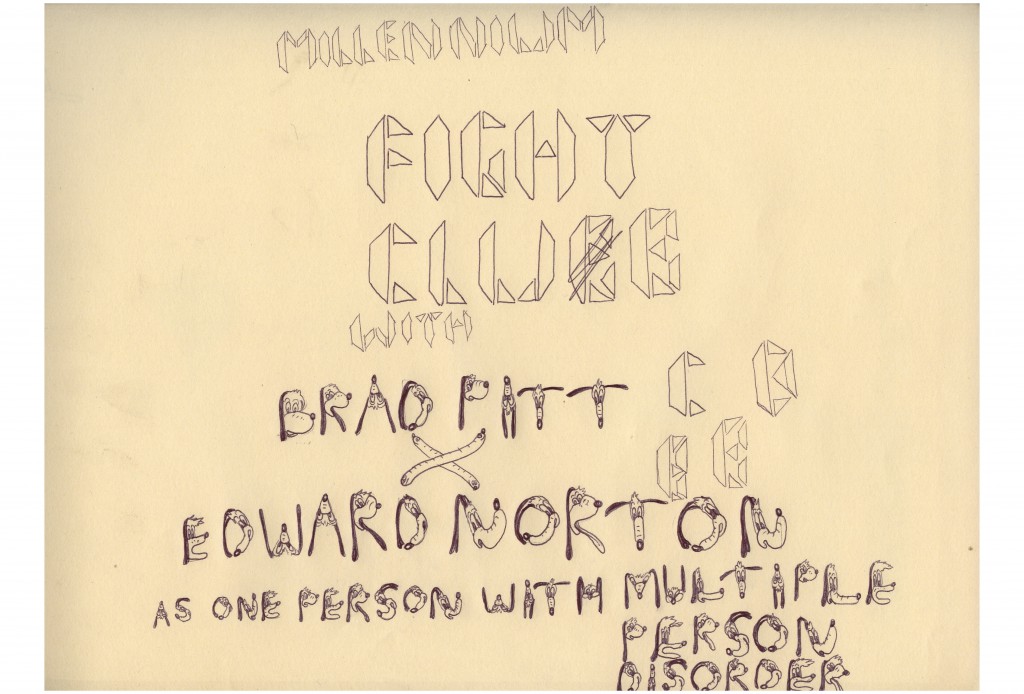 MILLENNIUM
FIGHT
CLUB
WITH
BRAD PITT
X
EDWARD NORTON
AS ONE PERSON WITH MULTIPLE
PERSON
DISORDER